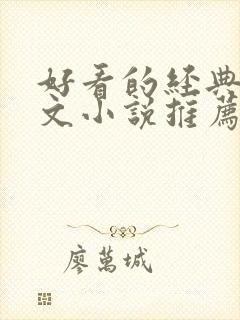 好看的经典
文小说推薦
廖萬城